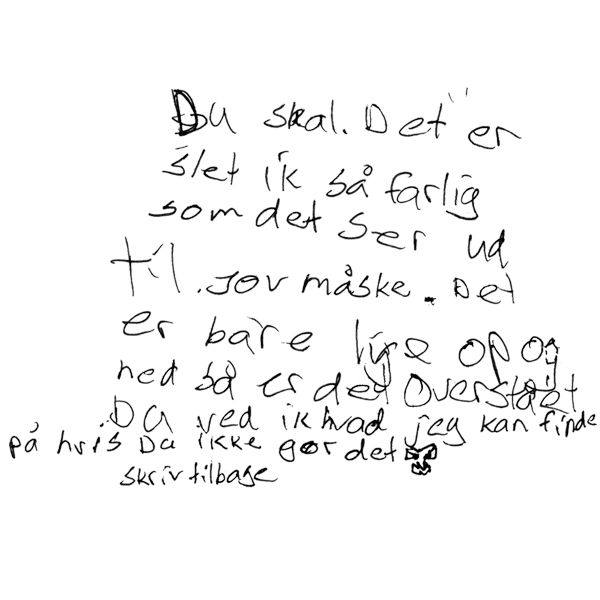 Du skal. Det er
slet ik så farlig
som det ser ud
til. Jov måske. Det
er bare lige op og
ned så er det overstået
Du ved ik hvad jeg kan finde
på hvis Du ikke gør det
skriv tilbage